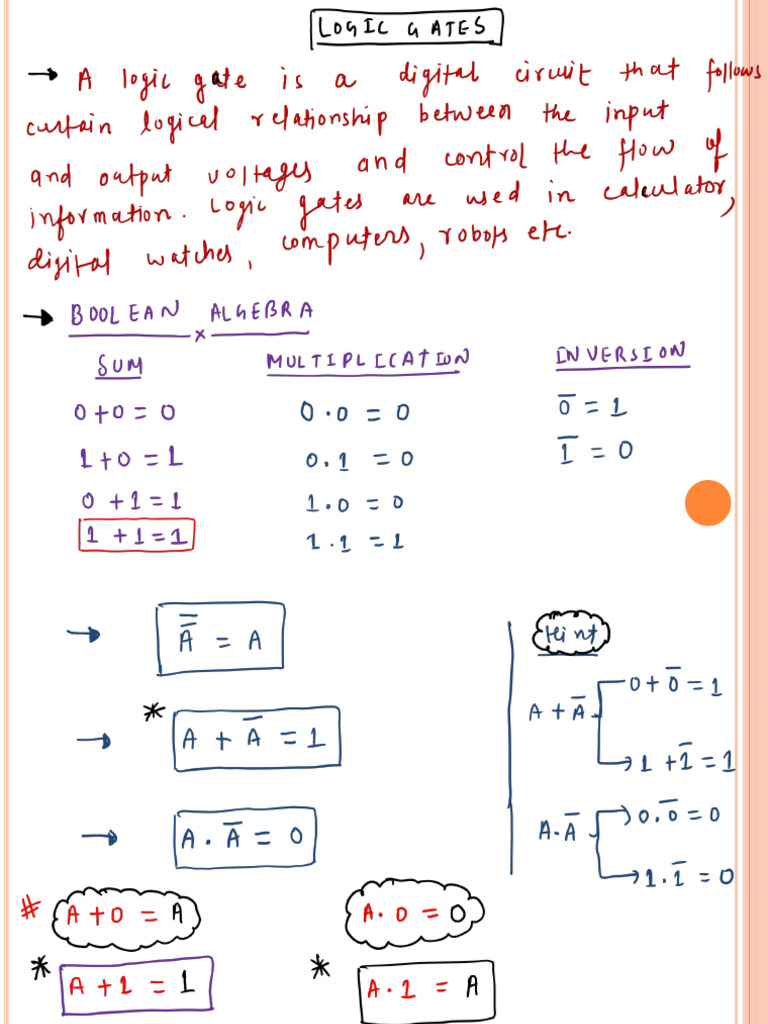 LOGIC GATES
→ A logic gate is a digital circuit that follows
curtain logical relationship between the input
and output voltages and control the flow of
information. Logic gates are used in calculator,
digital watches, computers, robots etc.
→ BOOLEAN × ALGEBRA
SUM MULTIPLICATION INVERSION
0+0=0 0·0=0 0̅=1
1+0=1 0.1=0 1̅=0
0+1=1 1.0=0
1+1=1 1.1=1
→ A̿ = A
Hint
A + A̅ 0+0̅=1
1+1̅=1
* → A + A̅ = 1
A.A̅ 0.0̅=0
1.1̅=0
→ A. A̅ = 0
# A+0 = A A.0 = 0
* A+1 = 1 * A.1 = A